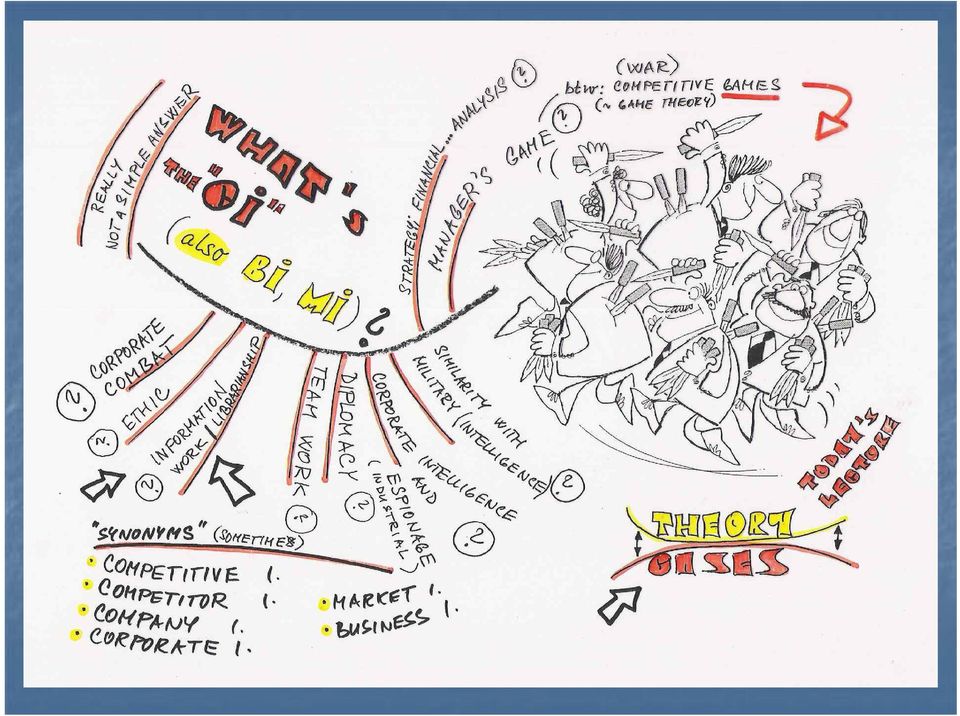 REALLY
NOT A SIMPLE ANSWER
WHAT'S
THE "CI"
(also BI, MI) ?
STRATEGY; FINANCIAL... ANALYSIS ?
MANAGER'S GAME ?
(WAR)
btw: COMPETITIVE GAMES
(~ GAME THEORY)
? CORPORATE
COMBAT
? ETHIC
? INFORMATION
WORK / LIBRARIANSHIP
TEAM WORK ?
DIPLOMACY ?
CORPORATE INTELLIGENCE
AND
ESPIONAGE
(INDUSTRIAL)
?
SIMILARITY WITH
MILITARY (INTELLIGENCE) ?
"SYNONYMS" (SOMETIMES)
• COMPETITIVE I.
• COMPETITOR I.
• COMPANY I.
• CORPORATE I.
• MARKET I.
• BUSINESS I.
TODAY'S
LECTURE
THEORY
CASES